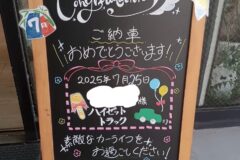 Congratulations
7
ご納車
おめでとうございます!
2025年7月25日
様
ハイゼット
トラック
素敵なカーライフを
お過ごしください!